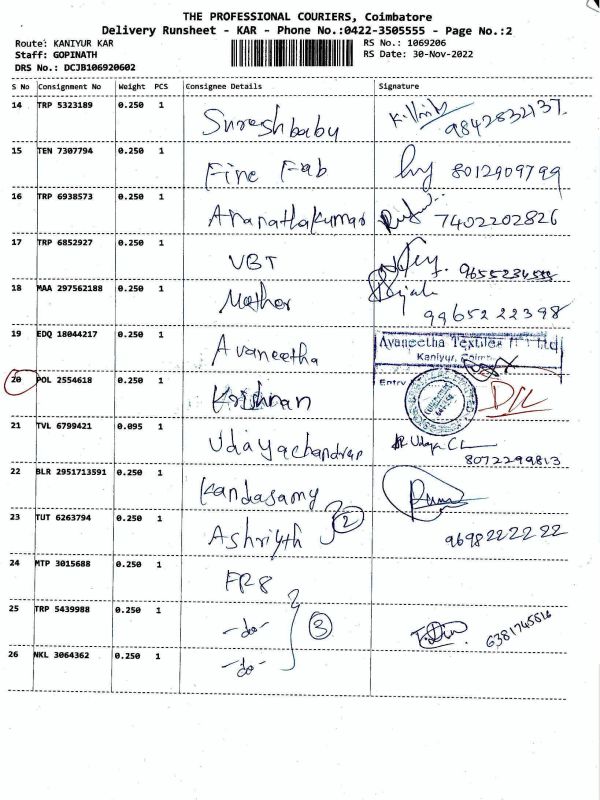 THE PROFESSIONAL COURIERS, Coimbatore
Delivery Runsheet - KAR - Phone No.:0422-3505555 - Page No.:2
Route: KANIYUR KAR RS No.: 1069206
Staff: GOPINATH RS Date: 30-Nov-2022
DRS No.: DCJB106920602
S No Consignment No Weight PCS Consignee Details Signature
14 TRP 5323189 0.250 1 Sureshbabu 9842832137
15 TEN 7307794 0.250 1 Fine Fab 8012909799
16 TRP 6938573 0.250 1 Ananathakumar 7402202826
17 TRP 6852927 0.250 1 VBT
18 MAA 297562188 0.250 1 Mother 9965222398
19 EDQ 18044217 0.250 1 Avaneetha Avaneetha Textiles Ltd
Kaniyur,
20 POL 2554618 0.250 1 Krishnan Entry
21 TVL 6799421 0.095 1 Udayachandran 8072299813
22 BLR 2951713591 0.250 1 Kandasamy
23 TUT 6263794 0.250 1 Ashriyth 2 9698222222
24 MTP 3015688 0.250 1 FP8
25 TRP 5439988 0.250 1 -do- 3
26 NKL 3064362 0.250 1 -do-